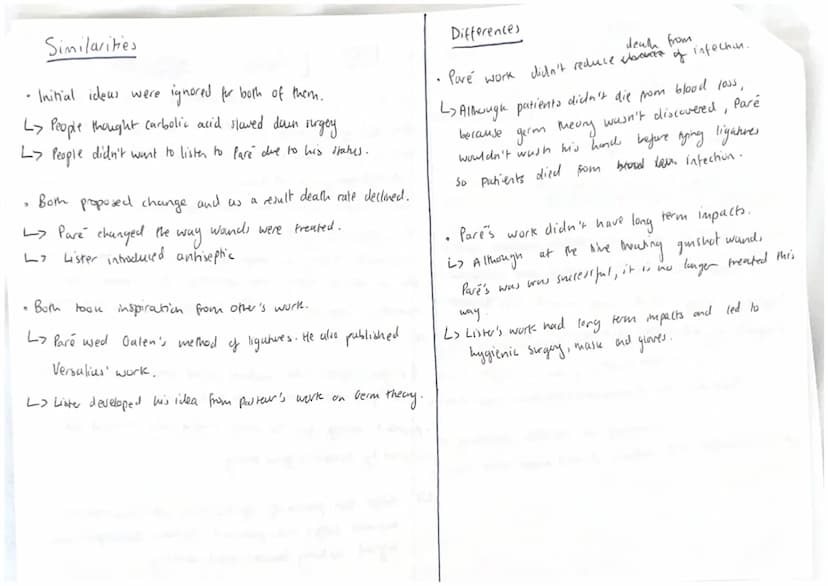 Similarities
• Initial ideas were ignored for both of them.
↳ People thought carbolic acid slowed down surgery
↳ People didn't want to listen to Paré due to his status.
• Both proposed change and as a result death rate declined.
↳ Paré changed the way wands were treated.
↳ Lister introduced antiseptic
• Both took inspiration from other's work.
↳ Paré used Galen's method of ligatures. He also published
Versalius' work.
↳ Lister developed his idea from Pasteur's work on Germ theory.
Differences
death from
• Paré work didn't reduce of infection.
↳ Although patients didn't die from blood loss,
because germ theory wasn't discovered, Paré
wouldn't wash his hands before tying ligatures
so patients died from infection.
• Paré's work didn't have long term impacts.
↳ Although at the time treating gunshot wands,
Paré's was was successful, it is no longer treated this
way.
↳ Lister's work had long term impacts and led to
hygienic surgery, mask and gloves.